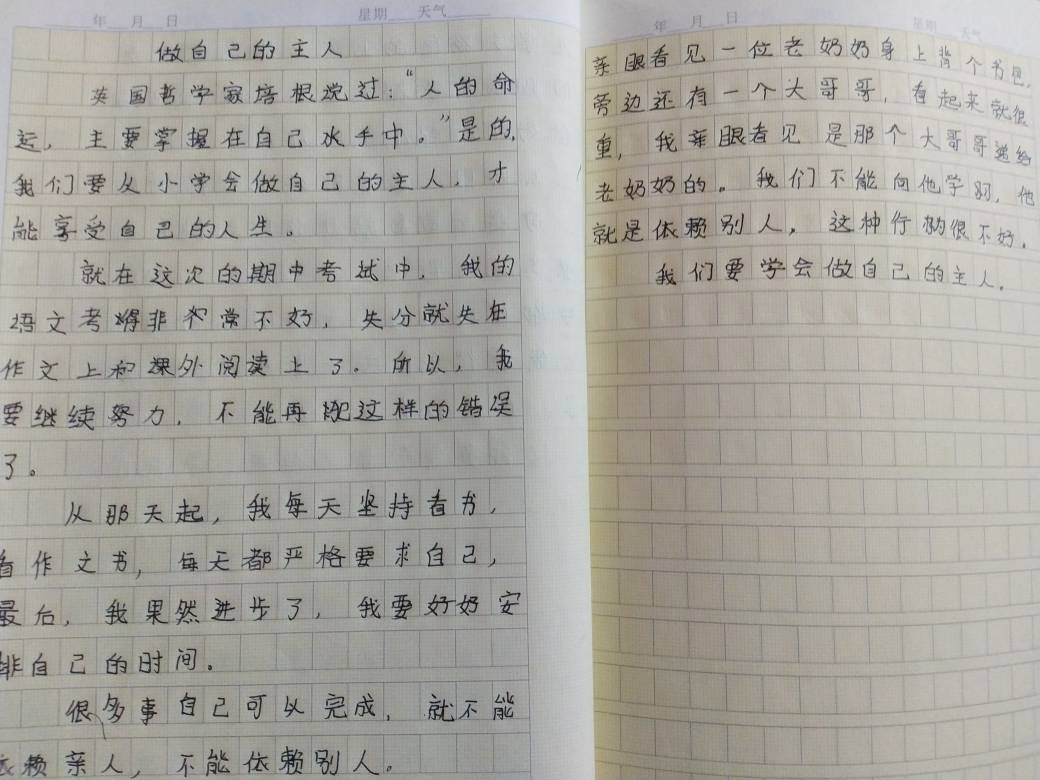 年 月 日 星期 天气
做自己的主人
英国哲学家培根说过：“人的命
运，主要掌握在自己水手中。”是的，
我们要从小学会做自己的主人，才
能享受自己的人生。
就在这次的期中考试中，我的
语文考得非常不好，失分就失在
作文上和课外阅读上了。所以，我
要继续努力，不能再犯这样的错误
了。
从那天起，我每天坚持看书，
看作文书，每天都严格要求自己，
最后，我果然进步了，我要好好安
排自己的时间。
很多事自己可以完成，就不能
依赖亲人，不能依赖别人。
年 月 日 星期 天气
亲眼看见一位老奶奶身上背个书包，
旁边还有一个大哥哥，看起来就很
重，我亲眼看见是那个大哥哥递给
老奶奶的。我们不能向他学习，他
就是依赖别人，这种行为很不好。
我们要学会做自己的主人。